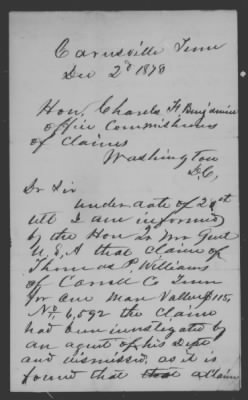 Cavesville Tenn
Dec 2d 1878
Hon. Charles F Benjamin
office Commissioners
of Claims
Washington
D.C,
Dr Sir
under date of 29st
ult I am informed
by the Hon Qr Mr Genl
U.S.A that claim of
Thomas P. Williams
of Carroll Co Tenn
for one Man Valley $115,
No. 6,592 the claim
had been investigated by
an agent of his Dept
and dismissed, as it is
found that that a claim